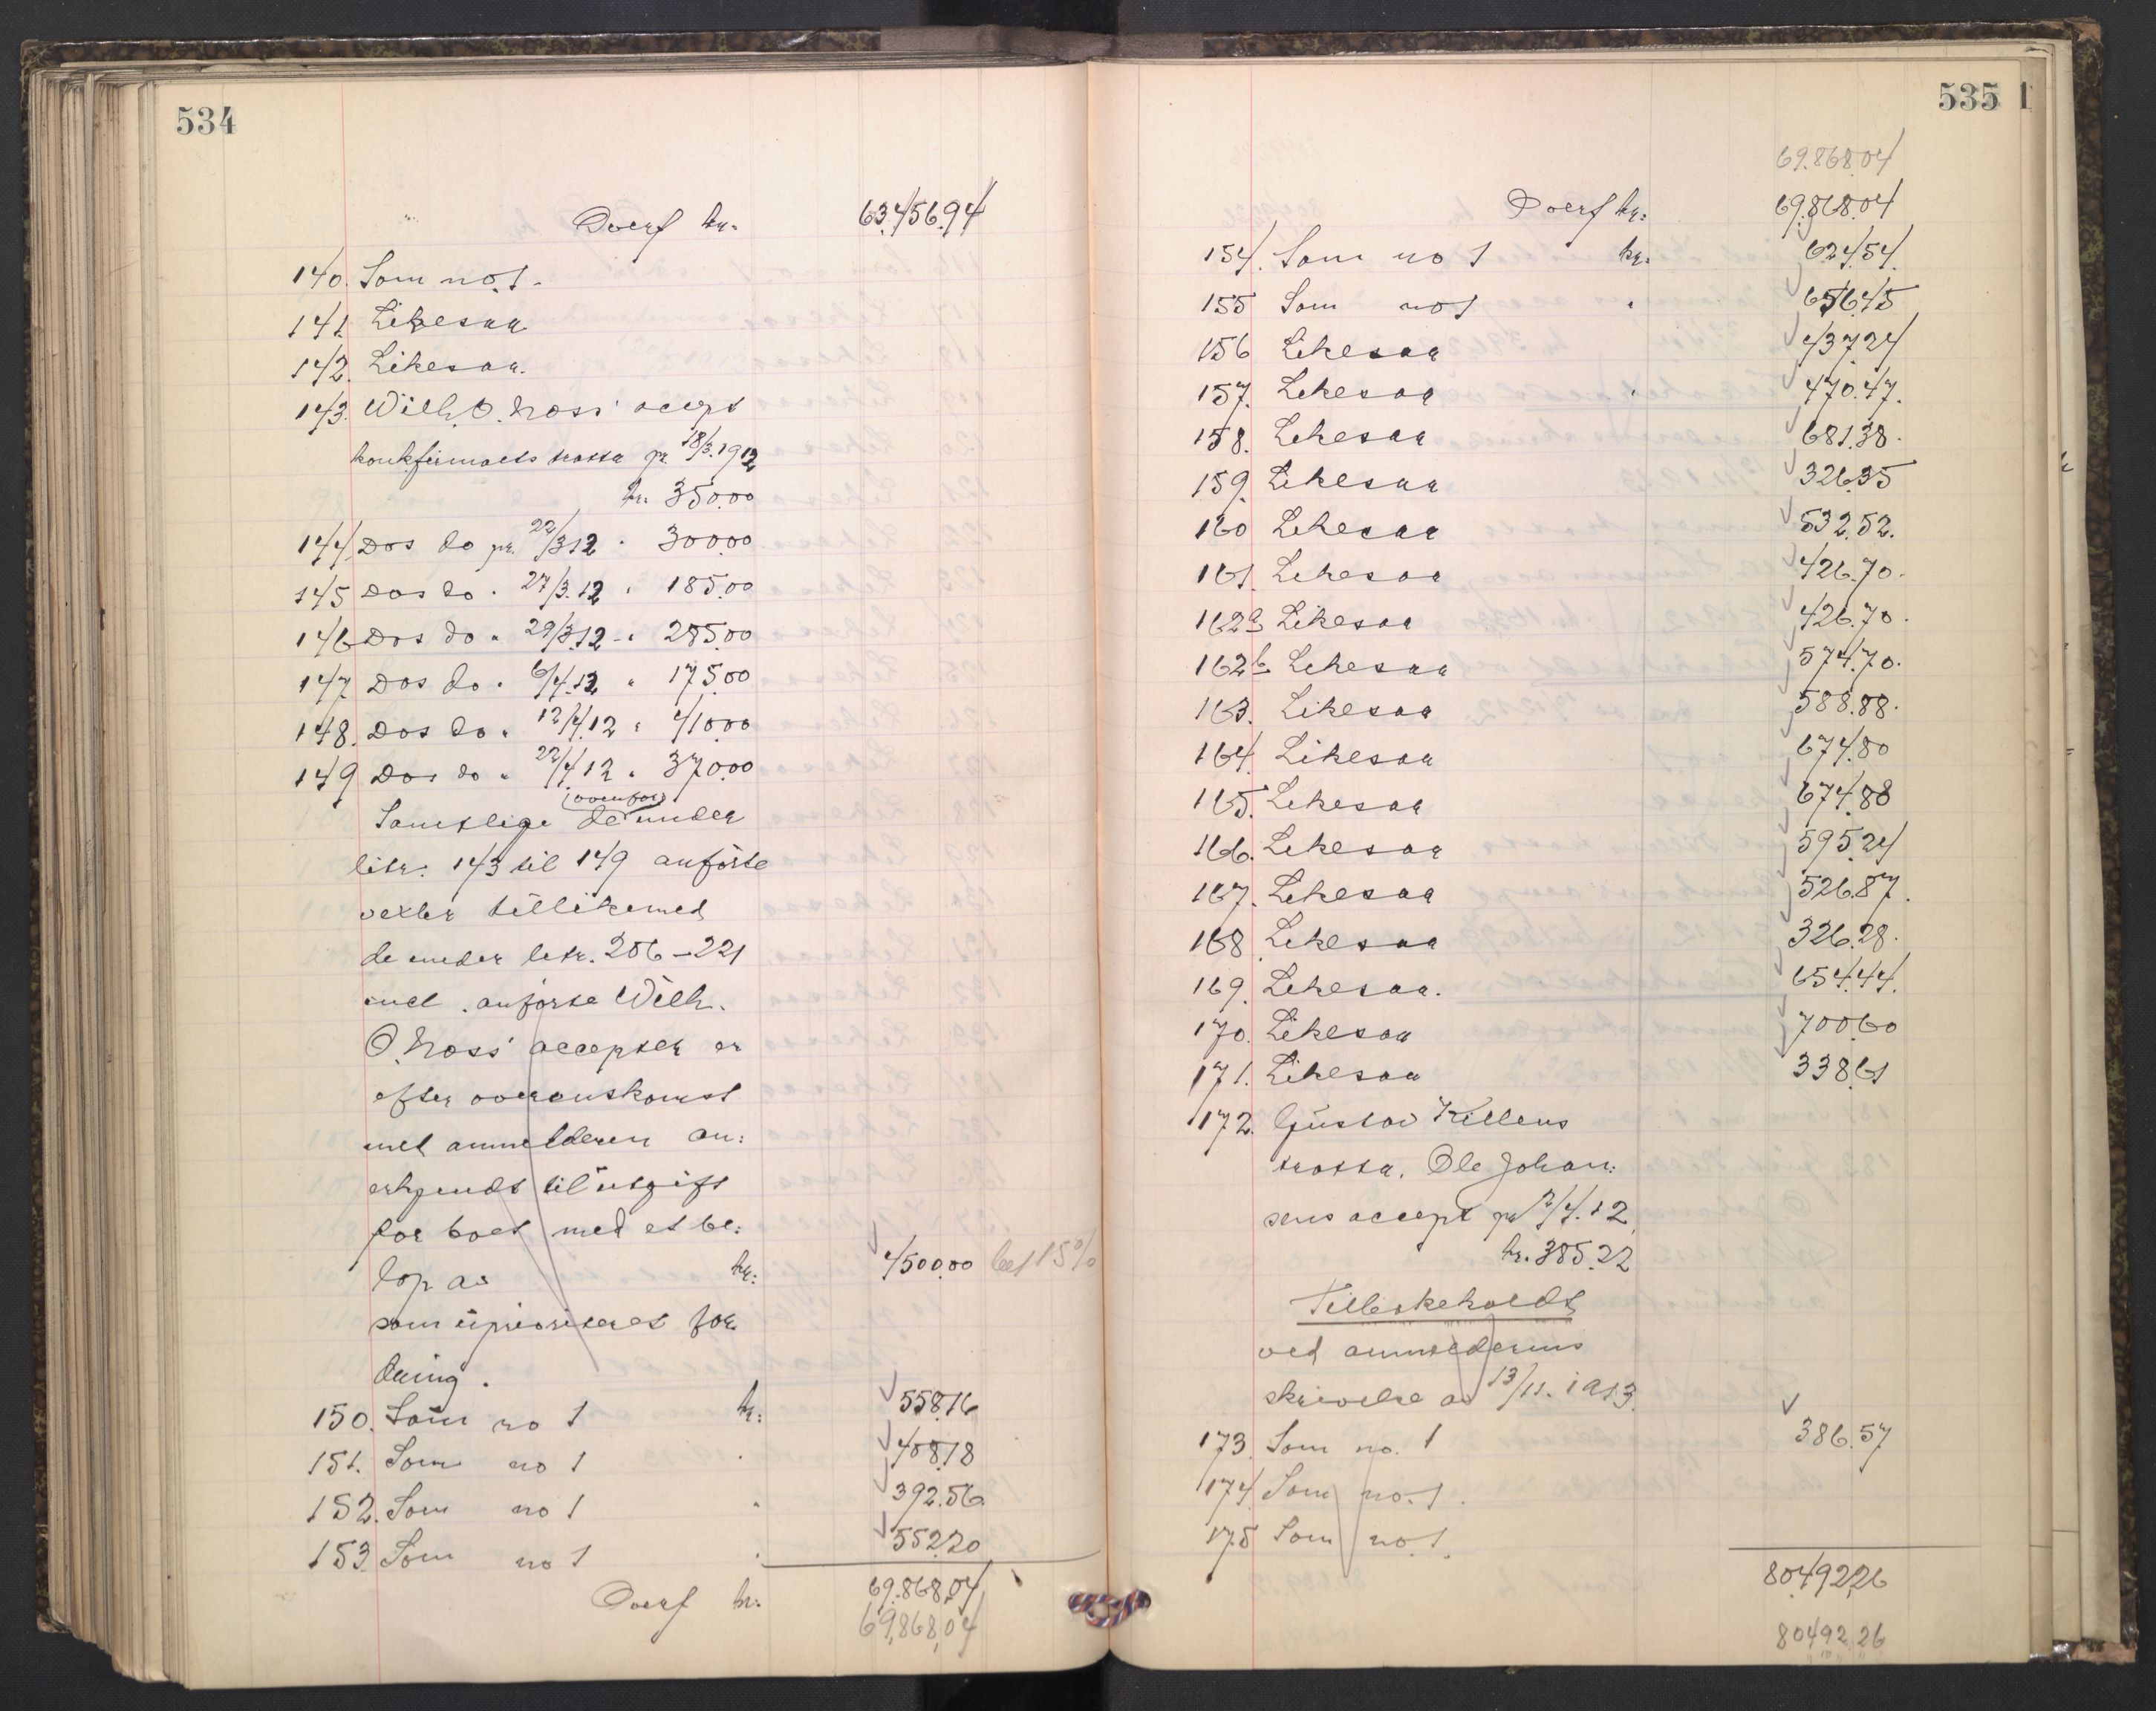 534
Overf kr. 63.456.94
140. Som no. 1.
141. Likesaa
142. Likesaa.
143. Wilh. O. Næss' accept
pr. 18/3.1912
kr. 350.00
144. Dos do pr. 22/3 12 " 300.00
145 Dos do " 27/3.12 " 185.00
146 Dos do " 29/3.12 - " 285.00
147 Dos do " 6/4.12 " 175.00
148. Dos do " 12/4.12 " 410.00
149 Dos do " 22/4.12 " 370.00
(ovenfor)
Samtlige de under
litr. 143 til 149 anførte
vexler tillikemed
de under litr. 206-221
incl. anførte Wilh.
O. Næss' accepter er
efter overenskomst
med anmelderen an:
erkjendt til utgift
for boet med et be:
løp av kr: 4500.00
som uprioriteret for
dring.
150. Som no 1 kr: 558.16
151. Som no 1 " 408.18
152. Som no 1 " 392.56
153. Som no 1 " 552.20
Overf kr. 69.868.04
69,868,04
535
69.868.04
Overf kr: 69.868.04
154. Som no 1 kr. 624.54.
155 Som no 1 " 656.45
156 Likesaa 437.24
157. Likesaa " 470.47.
158. Likesaa 681.38.
159. Likesaa 326.35
160 Likesaa 532.52.
161. Likesaa 426.70.
162a Likesaa 426.70.
162b Likesaa 574.70.
163. Likesaa 588.88.
164. Likesaa 674.80
165. Likesaa 674.88
166. Likesaa 595.24
167. Likesaa 526.87.
168. Likesaa 326.28.
169. Likesaa. 654.44.
170. Likesaa 700.60
171. Likesaa 338.61
172. Gustav Killens
tratta, Ole Johan:
sens accept pr 2/4.12
kr. 385.22
Tilbakeholdt
ved anmelderens
skrivelse av 13/11. 1913.
173. Som no. 1 386.57
174. Som no. 1.
175 Som no. 1.
80.492.26
80492.26